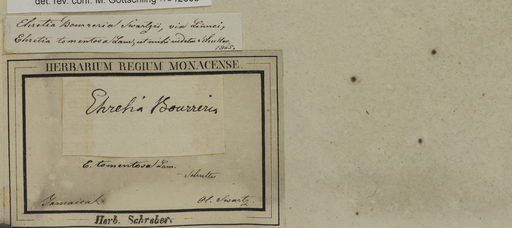 det. rev. com. M. Gottschling
Ehretia Bourreria Swartzii, vix Linnei,
Ehretia tomentosa Lam., ut mihi videtur Schultes
1865.
HERBARIUM REGIUM MONACENSE.
Ehretia Bourreria
E. tomentosa Lam.
Schultes
Jamaica.
Ol. Swartz
Herb. Schreber.